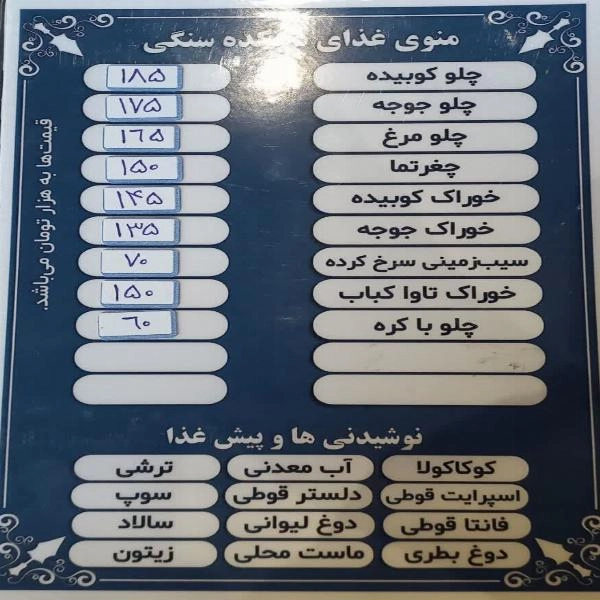 منوی غذای سنگی
چلو کوبیده ۱۸۵
چلو جوجه ۱۷۵
چلو مرغ ۱۶۵
چغرتما ۱۵۰
خوراک کوبیده ۱۴۵
خوراک جوجه ۱۳۵
سیب‌زمینی سرخ کرده ۷۰
خوراک تاوا کباب ۱۵۰
چلو با کره ۶۰
قیمت‌ها به هزار تومان می‌باشد.
نوشیدنی ها و پیش غذا
کوکاکولا آب معدنی ترشی
اسپرایت قوطی دلستر قوطی سوپ
فانتا قوطی دوغ لیوانی سالاد
دوغ بطری ماست محلی زیتون